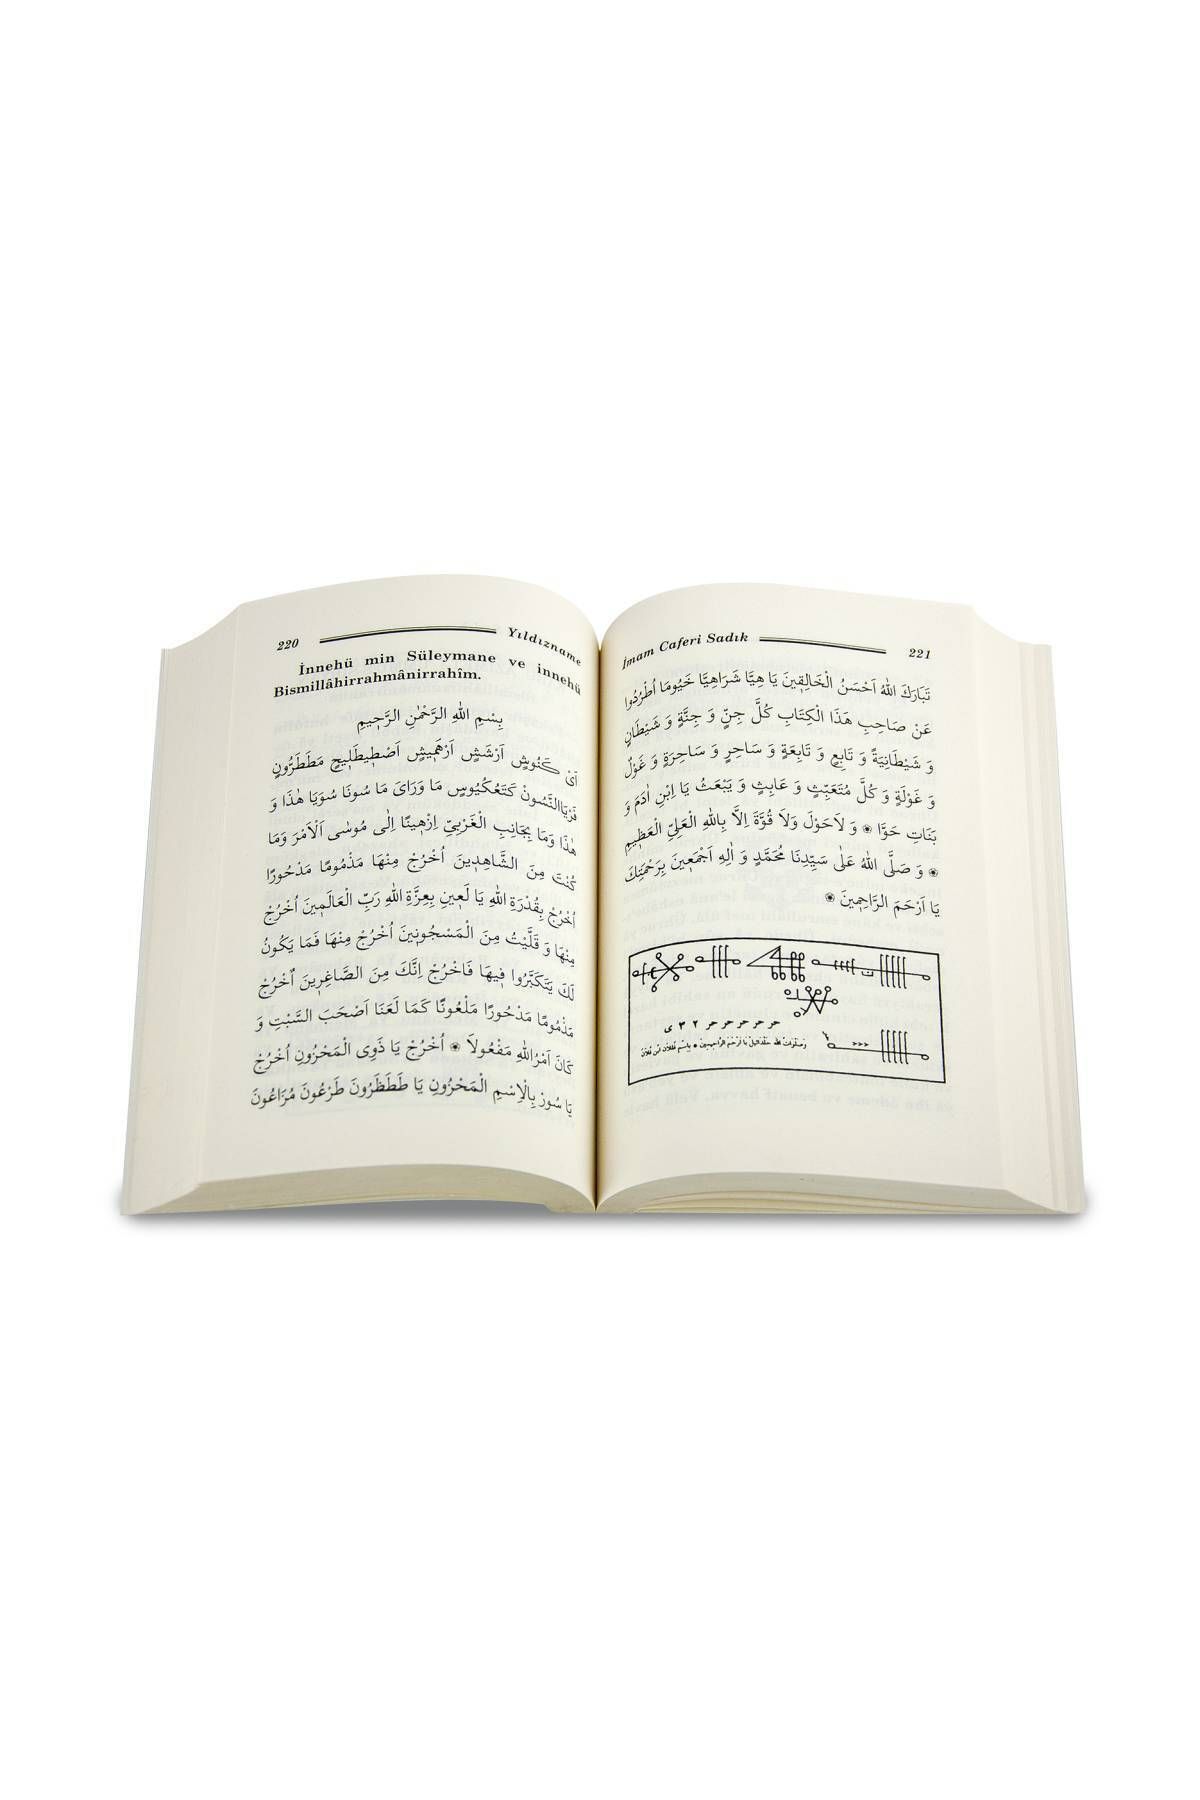 220 Yıldızname
İnnehü min Süleymane ve innehü
Bismillâhirrahmânirrahîm.
بِسْمِ اللهِ الرَّحْمٰنِ الرَّحٖيمِ
اَىْ كَنُوشٍ اَرْشَشٍ اَرْهَمٖيشٍ اَصْطٖيطَلٖيحٍ مَطَطَرُونٍ
مَا وَرَاىَ مَا سُونَا سُويَا هٰذَا وَ
هٰذَا وَمَا بِجَانِبِ الْغَرْبِىِّ اِرْهٖينًا اِلٰى مُوسٰى اَلْاَمْرَ وَمَا
كُنْتَ مِنَ الشَّاهِدٖينَ اُخْرُجْ مِنْهَا مَذْمُومًا مَدْحُورًا
اُخْرُجْ بِقُدْرَةِ اللهِ يَا لَعٖينِ بِعِزَّةِ اللهِ رَبِّ الْعَالَمٖينَ اُخْرُجْ
مِنْهَا وَ قَلَّيْتُ مِنَ الْمَسْجُونٖينَ اُخْرُجْ مِنْهَا فَمَا يَكُونُ
لَكَ يَتَكَبَّرُوا فٖيهَا فَاخْرُجْ اِنَّكَ مِنَ الصَّاغِرٖينَ اُخْرُجْ
مَذْمُومًا مَدْحُورًا مَلْعُونًا كَمَا لَعَنَا اَصْحَبَ السَّبْتِ وَ
كَانَ اَمْرُاللهِ مَفْعُولاً ❋ اُخْرُجْ يَا ذَوِى الْمَخْزُونِ اُخْرُجْ
يَا سُورُ بِالْاِسْمِ الْمَخْزُونِ يَا طَطَطَرُونَ طَرْعُونَ مُرَاعُونَ
İmam Caferi Sadık 221
تَبَارَكَ اللهُ اَحْسَنُ الْخَالِقٖينَ يَا هِيَّا شَرَاهِيَّا خَيُومَا اُطْرُدُوا
عَنْ صَاحِبِ هَذَا الْكِتَابِ كُلَّ جِنٍّ وَ جِنَّةٍ وَ شَيْطَانٍ
وَ شَيْطَانِيَةً وَ تَابِعٍ وَ تَابِعَةٍ وَ سَاحِرٍ وَ سَاحِرَةٍ وَ غَوْلٌ
وَ غَوْلَةٍ وَ كُلَّ مُتَعَبِّثٍ وَ عَابِثٍ وَ يَبْعَثُ يَا اِبْنِ اٰدَمَ وَ
بَنَاتِ حَوَّا ❋ وَ لاَحَوْلَ وَلاَ قُوَّةَ اِلاَّ بِاللهِ الْعَلِىِّ الْعَظٖيمِ
❋ وَ صَلَّى اللهُ عَلٰى سَيِّدِنَا مُحَمَّدٍ وَ اٰلِهِ اَجْمَعٖينَ بِرَحْمَتِكَ
يَا اَرْحَمَ الرَّاحِمٖينَ ❋